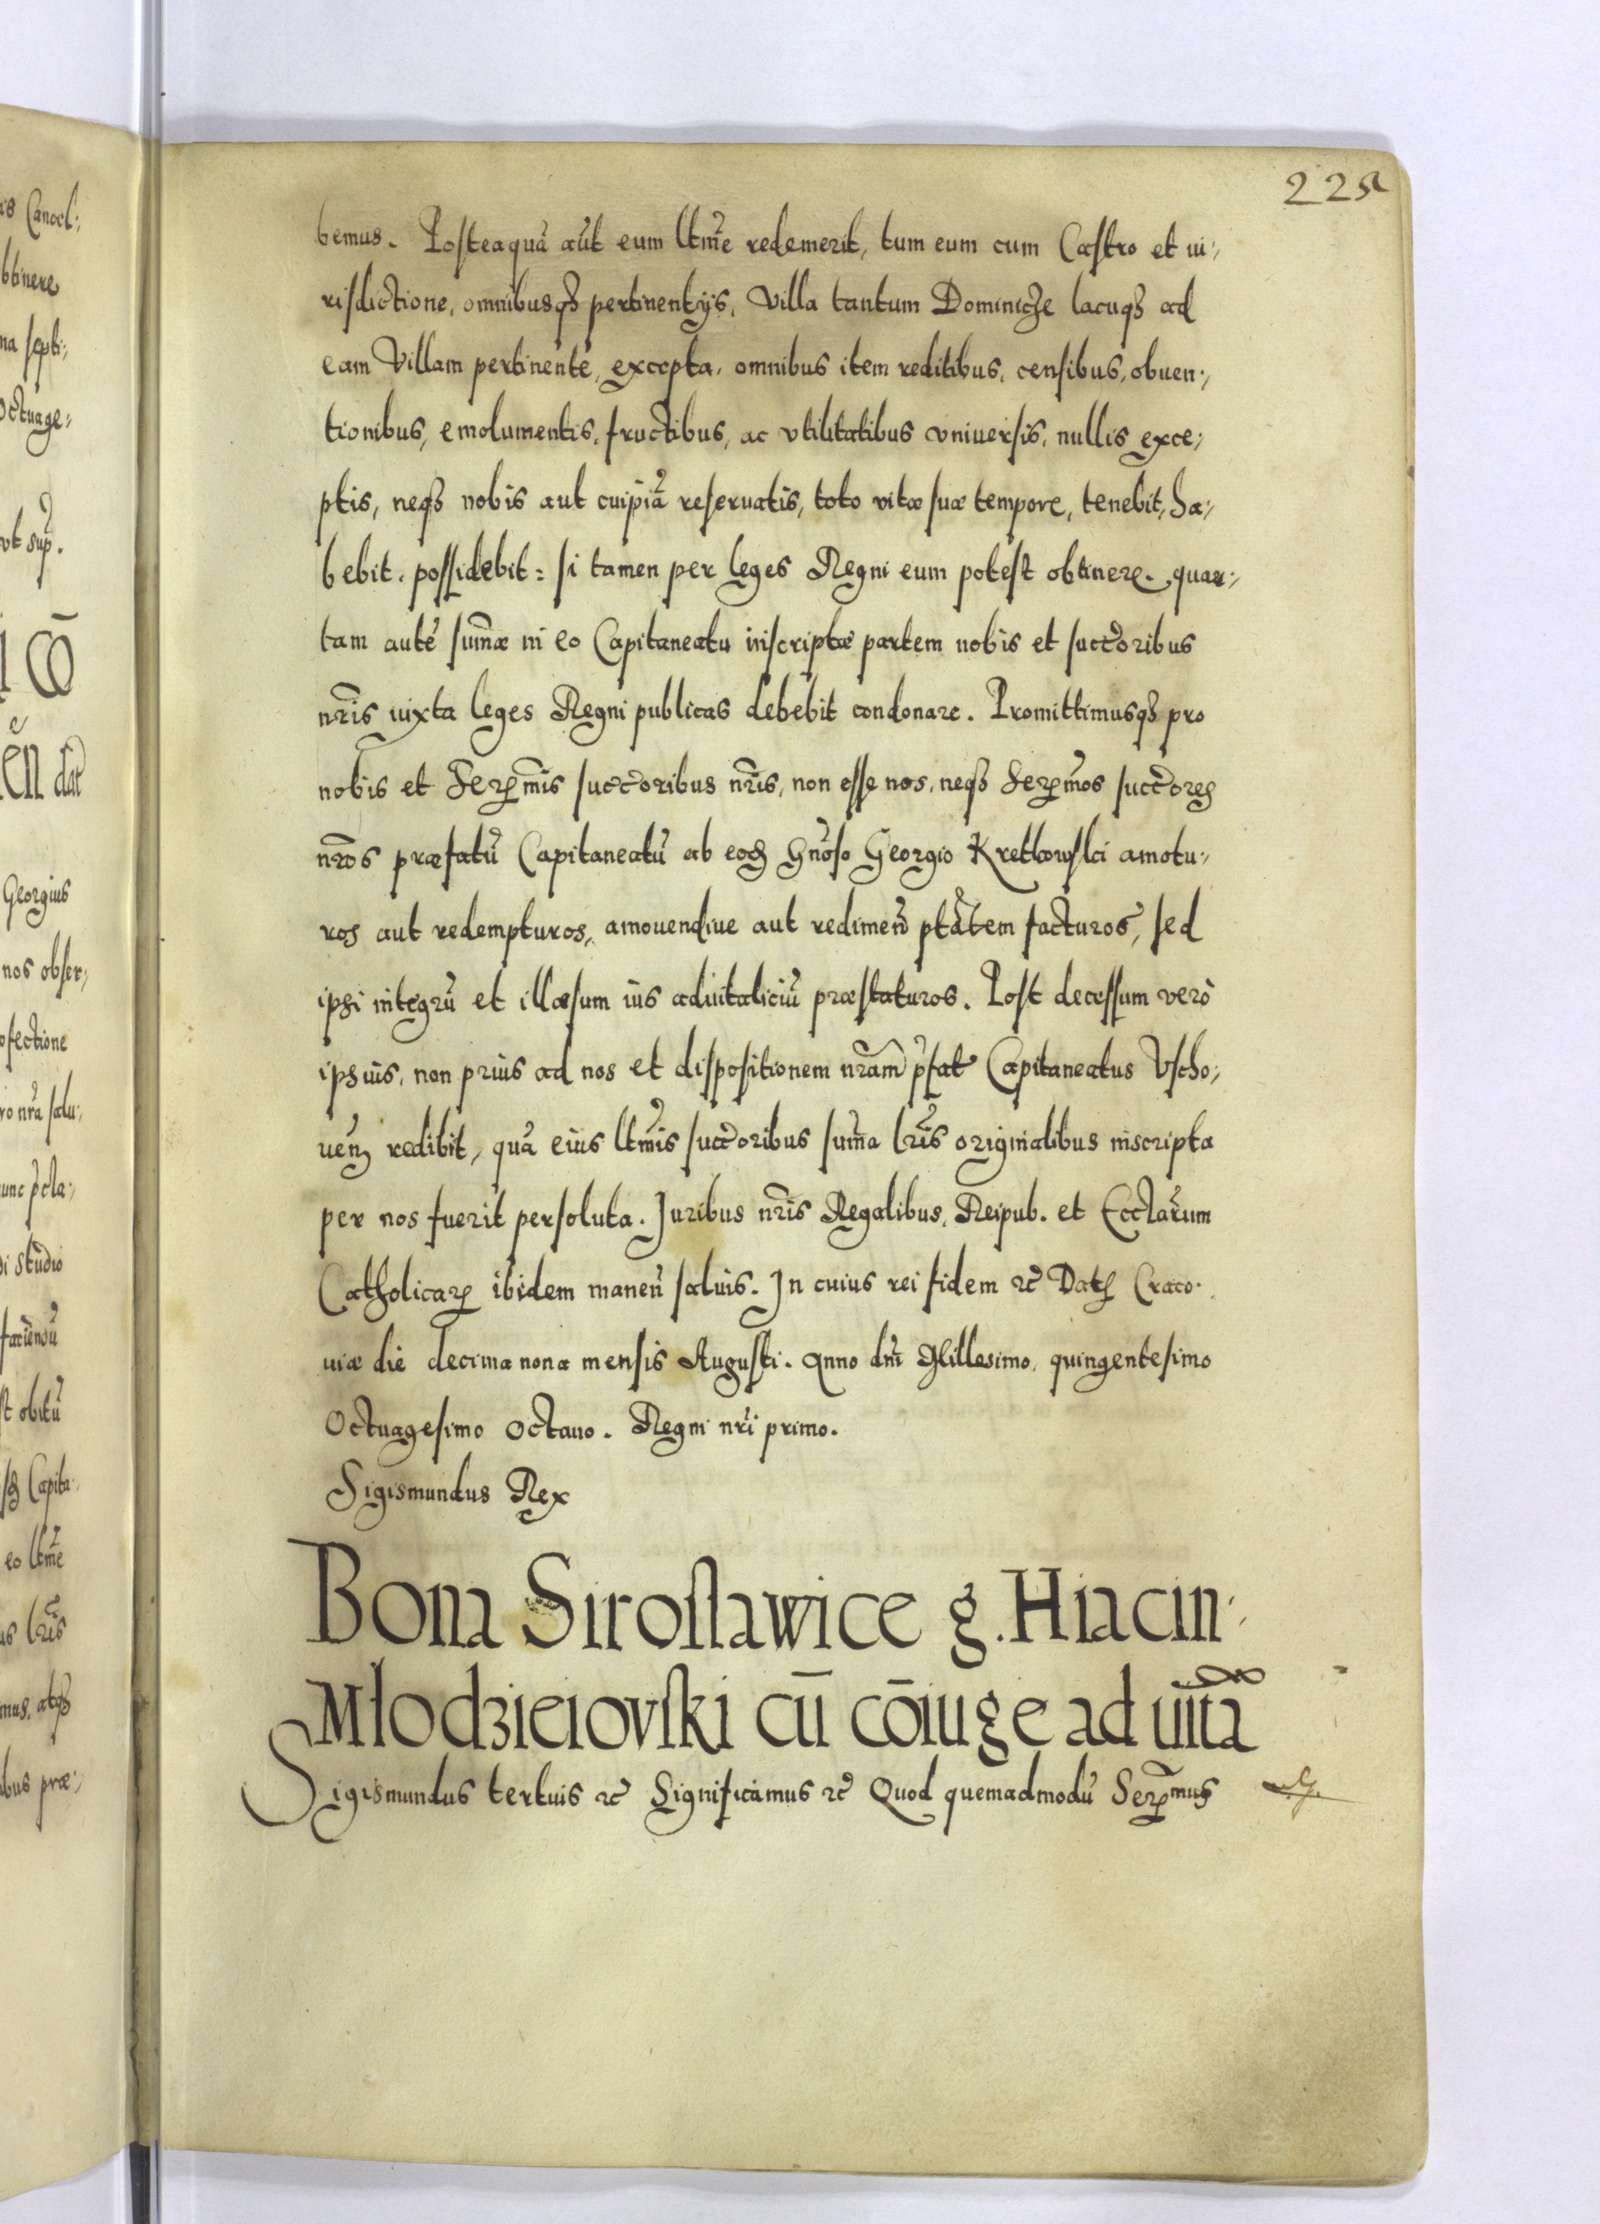 225
bemus. Posteaquã aũt eum ltm̃e redemerit, tum eum cum Castro et iu-
risdictione, omnibusq; pertinentijs, Villa tantum Dominicze lacuq; ad
eam Villam pertinente, excepta, omnibus item reditibus, censibus, obuen-
tionibus, emolumentis, fructibus, ac vtilitatibus vniuersis, nullis exce-
ptis, neq; nobis aut cuipiã reseruatis, toto vitæ suæ tempore, tenebit, ha-
bebit, possidebit: si tamen per leges Regni eum potest obtinere. quar-
tam autẽ sum̃æ in eo Capitaneatu inscriptæ partem nobis et succ̃oribus
nr̃is iuxta leges Regni publicas debebit condonare. Promittimusq; pro
nobis et Serm̃is succ̃oribus nr̃is, non esse nos, neq; Serm̃os succ̃ores
nr̃os præfatũ Capitaneatũ ab eod Gñoso Georgio Kretkowski amotu-
ros aut redempturos, amouendiue aut redimeñ ptãtem facturos, sed
ipsi integrũ et illæsum ius aduitaliciũ præstaturos. Post decessum verò
ipsius, non prius ad nos et dispositionem nr̃am p̃fat Capitaneatus Vscho-
ueñ redibit, quã eius ltm̃is succ̃oribus sum̃a lr̃is originalibus inscripta
per nos fuerit persoluta. Juribus nr̃is Regalibus, Reipub. et Eccl̃arum
Catholicar ibidem maneñ saluis. In cuius rei fidem etc Dat Craco-
uiæ die decima nona mensis Augusti. Anno dñi Millesimo, quingentesimo
Octuagesimo Octauo. Regni nr̃i primo.
Sigismundus Rex
Bona Siroslawice g. Hiacin-
Młodzieiovski cũ cõiuge ad uitã
Sigismundus tertius etc Significamus etc Quod quemadmodũ Serm̃us